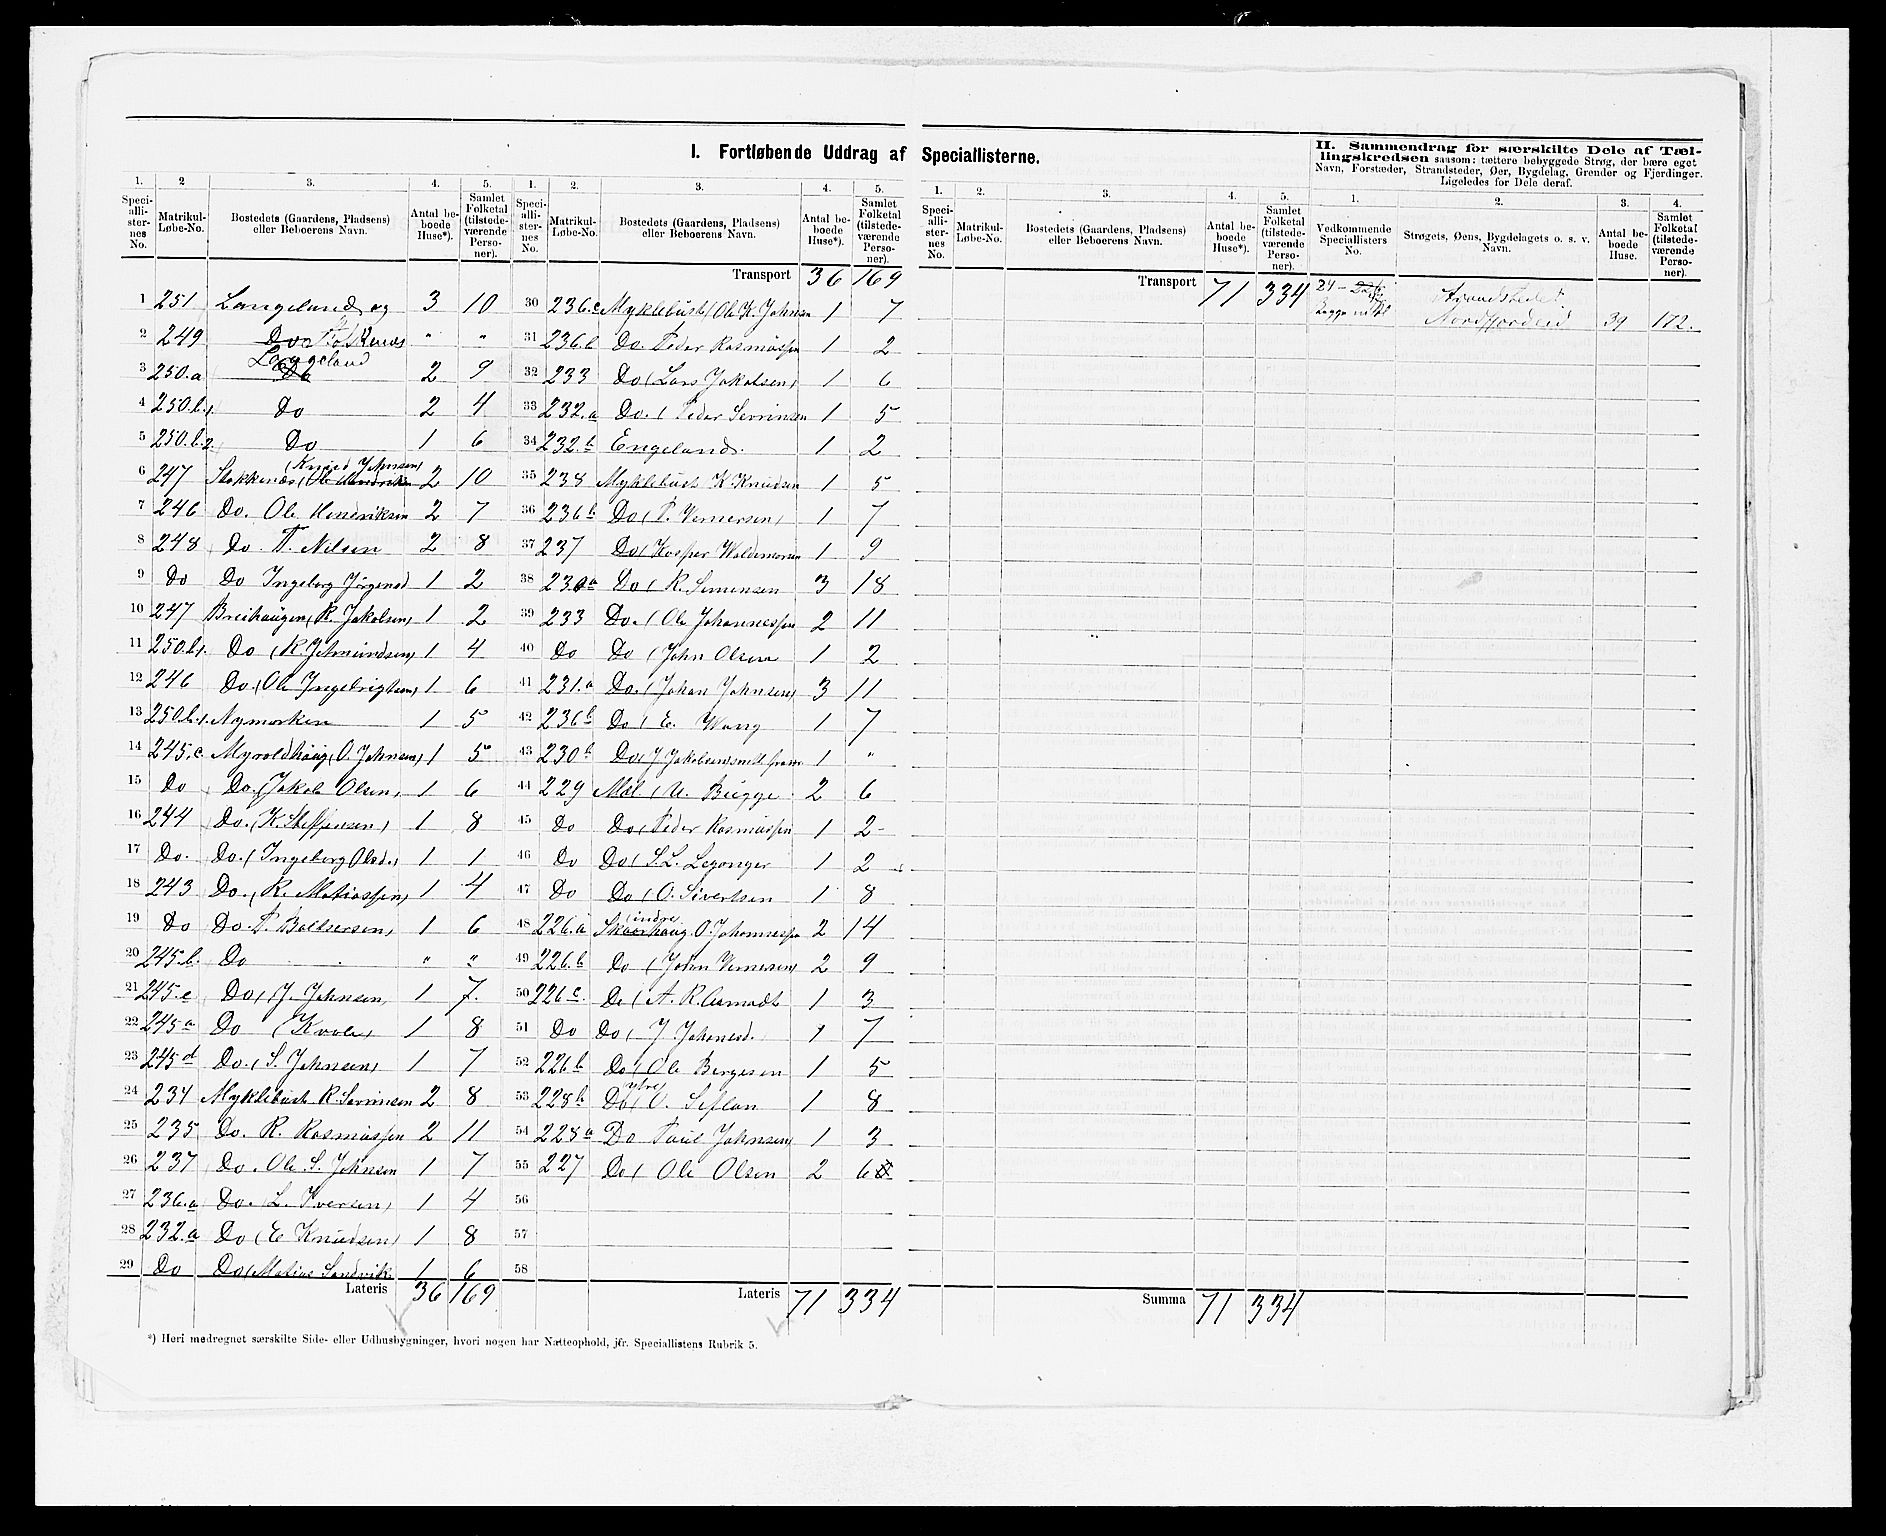 I. Fortløbende Uddrag af Speciallisterne.
II. Sammendrag for særskilte Dele af Tællingskredsen saasom: tættere bebyggede Strøg, der bære eget Navn, Forstæder, Strandsteder, Øer, Bygdelag, Grender og Fjerdinger. Ligeledes for Dele deraf.
1. 2. 3. 4. 5.
Speciallisternes No. Matrikul-Løbe-No. Bostedets (Gaardens, Pladsens) eller Beboerens Navn. Antal beboede Huse*). Samlet Folketal (tilstedeværende Personer).
1 251 Langeland og 3 10
2 249 Do Stokkenes " "
3 250.a Langeland Do 2 9
4 250.b.1 Do 2 4
5 250.b.2. Do 1 6
6 247 Stokkenæs (Knud Johnsen) 2 10
7 246 Do. Ole Hendriksen 2 7
8 248 Do. P. Nilsen 2 8
9 Do Do Ingeborg Jørgensd 1 2
10 247 Breihaugen (R. Jakobsen) 1 2
11 250.b1. Do (R. Johnundsen) 1 4
12 246 Do. (Ole Ingebrigtsen) 1 6
13 250.b.1. Nymarken 1 5
14 245.c Myroldhaug (O. Johnsen) 1 5
15 Do Do. (Jakob Olsen) 1 6
16 244 Do. (K. Steffensen) 1 8
17 Do. Do. (Ingeborg Olsd.) 1 1
18 243 Do. (R. Matiassen) 1 4
19 Do Do P. Baltsersen) 1 6
20 245.b. Do " "
21 245.e Do (J. Johnsen) 1 7.
22 245a Do (Kvole) 1 8
23 245d Do. (S. Johnsen) 1 7
24 234 Myklebust R. Sørensen 2 8
25 235 Do. R. Rasmussen 2 11
26 237 Do. Ole S. Johnsen 1 7
27 236.a Do. (L. Iversen) 1 4
28 232.a Do (E Knudsen) 1 8
29 Do Do (Matias Sandvik 1 6
Lateris 36 169
1. 2. 3. 4. 5.
Speciallisternes No. Matrikul-Løbe-No. Bostedets (Gaardens, Pladsens) eller Beboerens Navn. Antal beboede Huse*). Samlet Folketal (tilstedeværende Personer).
Transport 36 169
30 236.c Myklebust (Ole K. Johnsen 1 7
31 236.b Do. Peder Rasmussen 1 2
32 233 Do (Lars Jakobsen) 1 6
33 232.a Do. (Peder Sevrinsen 1 5
34 232.b Engeland. 1 2
35 238 Myklebust K Knudsen 1 5
36 236b Do (P. Vernersen) 1 7
37 237 Do (Kasper Waldemarsen 1 9
38 230a Do (R. Simensen 3 18
39 233 Do. (Ole Johannessen 2 11
40 Do Do (John Olsen 1 2
41 231.a Do. (Johan Johnsen) 3 11
42 236b Do (E. Wang 1 7
43 230b Do (J Jakobsen 1 "
44 229 Mæl (U. Bugge 2 6
45 Do Do (Peder Rasmussen 1 2
46 Do Do (S.L. Leganger 1 2
47 Do Do (O. Sivertsen 1 8
48 226.a Skaarhaug indre O. Johannessen 2 14
49 226.b Do (John Vernersen) 2 9
50 226c. Do (A. R. Aamodt 1 3
51 Do Do (J Johansd. 1 7
52 226b Do (Ole Børgesen 1 5
53 228b Do ytre (O. Seflan 1 8
54 228a Do Paul Johnsen) 1 3
55 227 Do (Ole Olsen 2 6
56
57
58
Lateris 71 334
1. 2. 3. 4. 5.
Speciallisternes No. Matrikul-Løbe-No. Bostedets (Gaardens, Pladsens) eller Beboerens Navn. Antal beboede Huse*). Samlet Folketal (tilstedeværende Personer).
Transport 71 334
Summa 71 334
1. 2. 3. 4.
Vedkommende Speciallisters No. Strøgets, Øens, Bygdelagets o. s. v. Navn. Antal beboede Huse. Samlet Folketal (tilstedeværende Personer).
24 - Strandstedet
Nordfjordeid 39 172.
*) Heri medregnet særskilte Side- eller Udhusbygninger, hvori nogen har Natteophold, jfr. Speciallistens Rubrik 5.